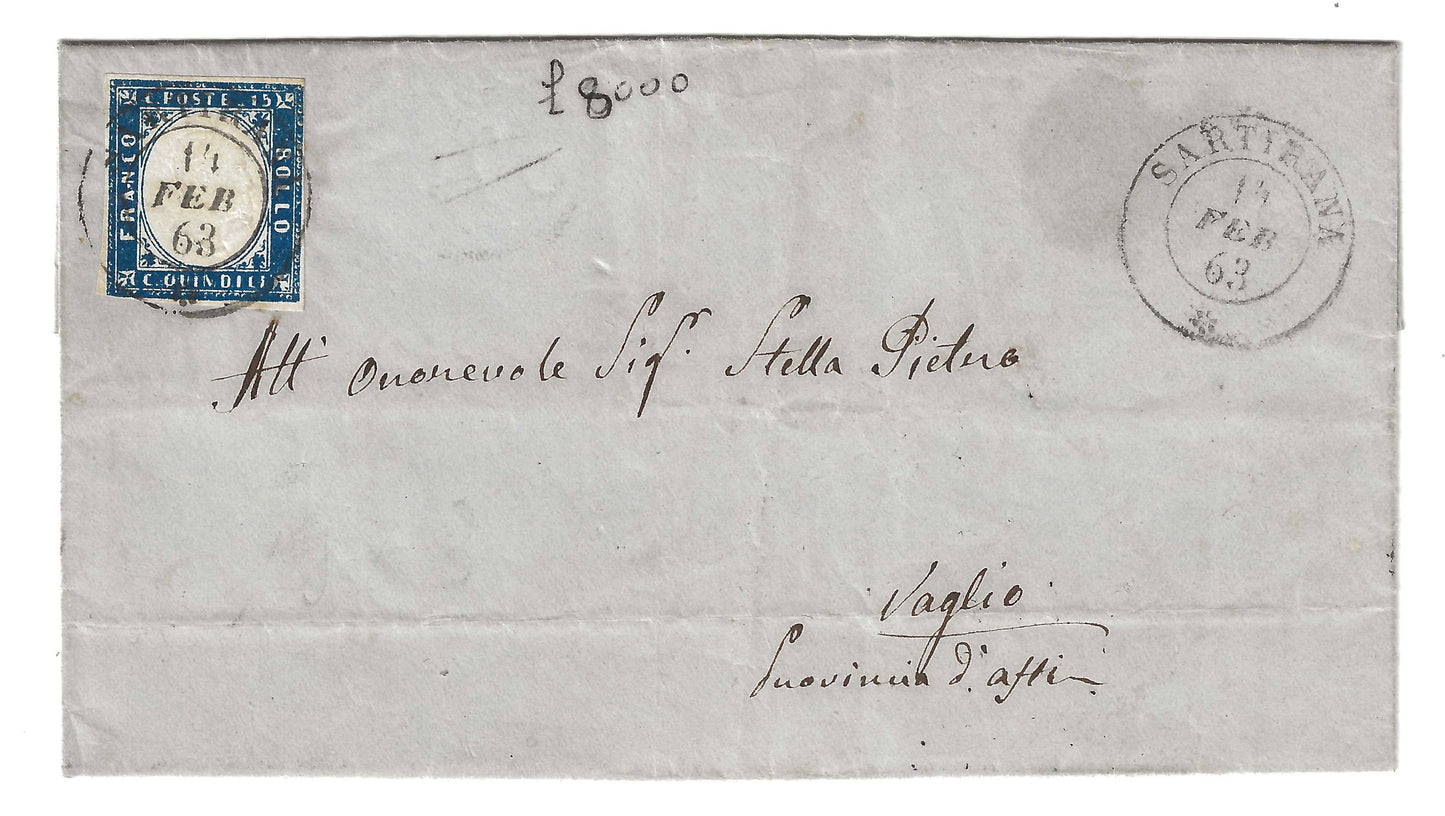 C. POSTE. 15
FRANCO
BOLLO
C. QUINDICI
14
FEB
63
£ 8000
SARTIRANA
14
FEB
63
All' Onorevole Sigr. Stella Pietro
Vaglio
Provincia d'Asti